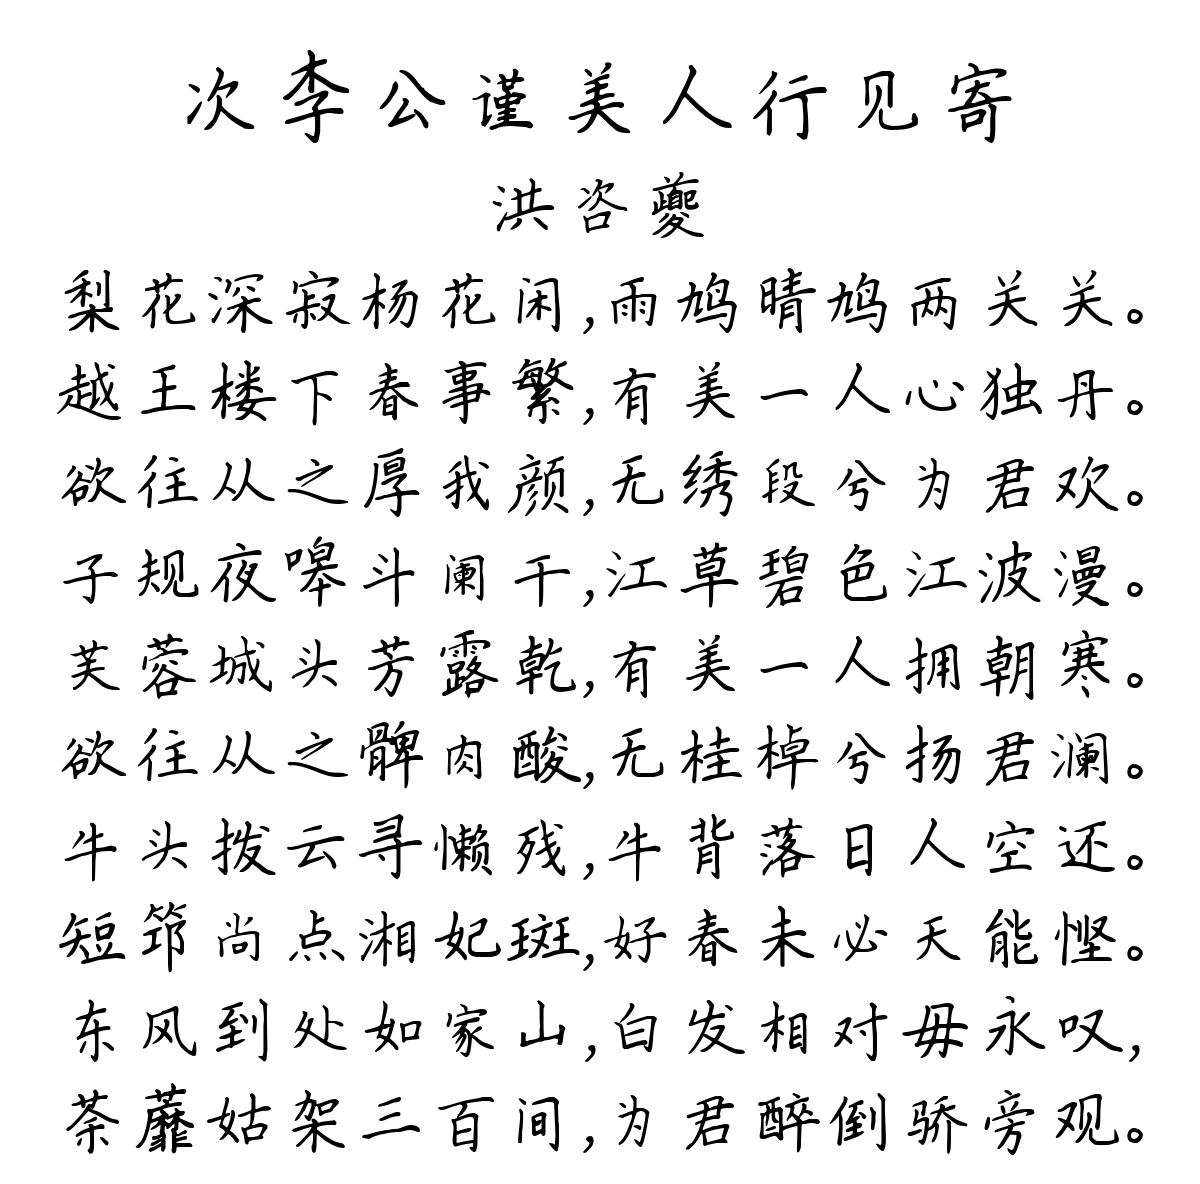 次李公谨美人行见寄
洪咨夔
梨花深寂杨花闲,雨鸠晴鸠两关关。
越王楼下春事繁,有美一人心独丹。
欲往从之厚我颜,无绣段兮为君欢。
子规夜嗥斗阑干,江草碧色江波漫。
芙蓉城头芳露乾,有美一人拥朝寒。
欲往从之髀肉酸,无桂棹兮扬君澜。
牛头拨云寻懒残,牛背落日人空还。
短筇尚点湘妃斑,好春未必天能悭。
东风到处如家山,白发相对毋永叹,
荼蘼姑架三百间,为君醉倒骄旁观。